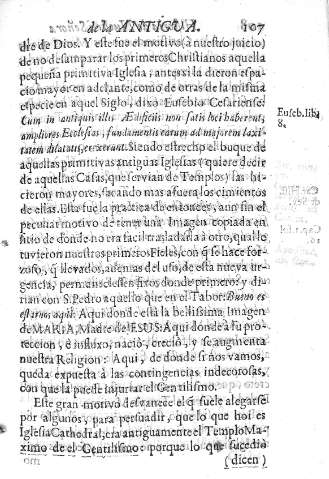 de la ANTIGUA. 107
dre de Dios. Y este fue el motivo (à nuestro juicio)
de no desamparar los primeros Christianos aquella
pequeña primitiva Iglesia; antes si la dieron espa-
cio mayor en adelante, como de otras de la misma
especie en aquel Siglo, dixo Eusebio Cesariense:
Cum in antiquis illis Ædificiis non satis loci haberent,
ampliores Ecclesias, fundamentis earum ad majorem laxi-
tatem dilatatis, exererunt. Siendo estrecho el buque de
aquellas primitivas antiguas Iglesias (quiere decir
de aquellas Casas, que servian de Templos) las hi-
cieron mayores, sacando mas afuera los cimientos
de ellas. Esta fue la practica de entonces, aun sin el
peculiar motivo de tener una Imagen copiada en
sitio de donde no era facil trasladarla à otro, qual lo
tuvieron nuestros primeros Fieles, con q̃ se hace for-
zoso, q̃ llevados, ademas del uso, de esta nueva ur-
gencia, permaneciessen fixos donde primero, y di-
rian con S. Pedro aquello que en el Tabor: Bueno es
estarnos aqui: Aqui donde està la bellissima Imagen
de MARIA, Madre de JESUS: Aqui donde à su pro-
teccion, è influxo, naciò, creciò, y se augmenta
nuestra Religion: Aqui, de donde si nos vamos,
queda expuesta à las contingencias indecorosas,
con que la puede injuriar el Gentilismo.
Este gran motivo desvanece el q̃ suele alegarse
por algunos, para persuadir, que lo que hoi es
Iglesia Cathedral, era antiguamente el Templo Ma-
ximo de el Gentilismo: porque lo que sucediò
(dicen)
Euseb. lib.
8.